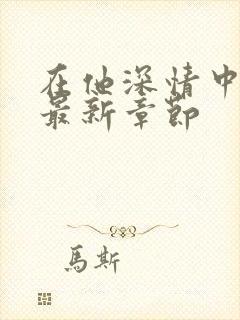 在他深情中
最新章節
馬斯